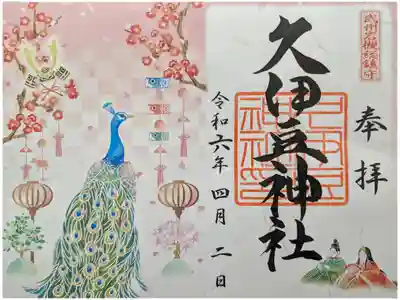 奉拝
久伊豆神社
令和六年 四月 二日